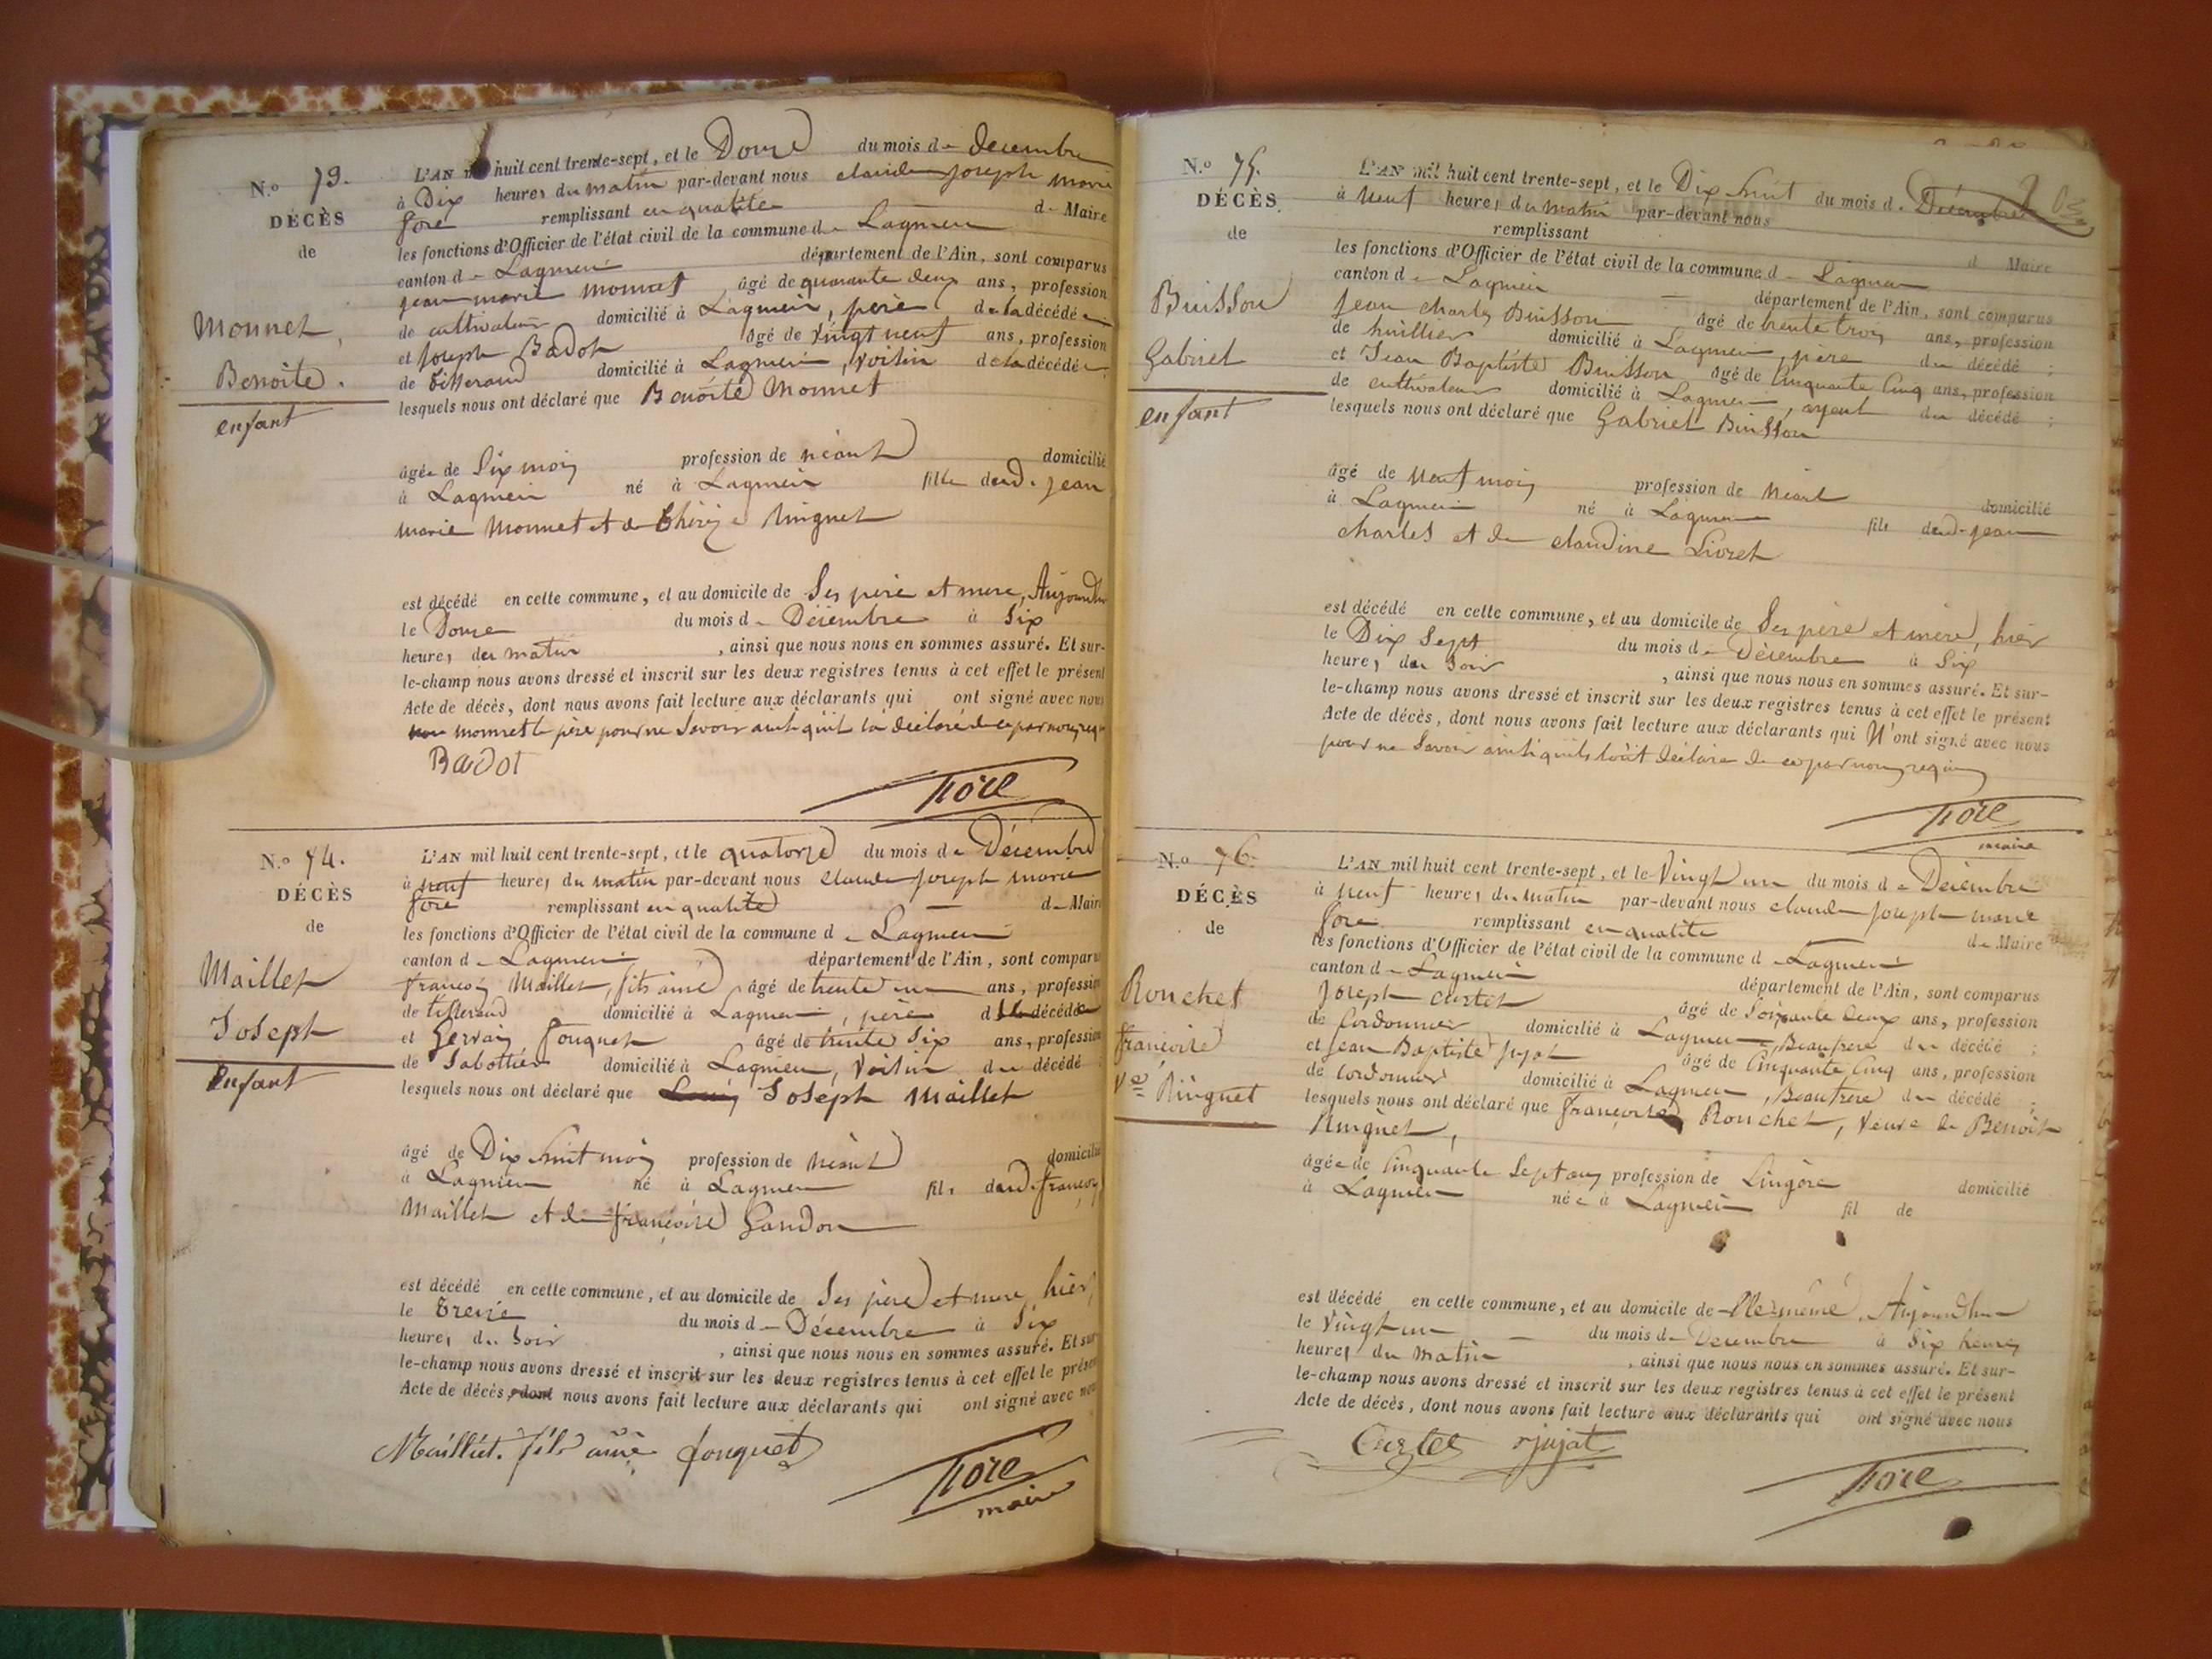 N.o 73.
DÉCÈS
de
Monnet,
Benoite.
enfant
L'AN mil huit cent trente-sept, et le Douze du mois de decembre
à Dix heures du matin par-devant nous claude joseph marie
fore remplissant en qualité de Maire
les fonctions d'Officier de l'état civil de la commune de Lagnieu
canton de Lagnieu département de l'Ain, sont comparus
jean marie monnet âgé de quarante deux ans, profession
de cultivateur domicilié à Lagnieu, père de la décédée
et joseph Badot âgé de vingt neuf ans, profession
de tisserand domicilié à Lagnieu, voisin de la décédée
lesquels nous ont déclaré que Benoite Monnet
âgée de Six mois profession de néant domicilié
à Lagnieu né à Lagnieu fille dud. jean
marie Monnet et de Thérèze Ringuet
est décédé en cette commune, et au domicile de Ses père et mere, Aujourdhui
le Douze du mois de Décembre à Six
heures du matin , ainsi que nous nous en sommes assuré. Et sur-
le-champ nous avons dressé et inscrit sur les deux registres tenus à cet effet le présent
Acte de décès, dont nous avons fait lecture aux déclarants qui ont signé avec nous
non monnet le père pour ne Savoir ainsi qu'il la déclaré de ce par nous requis
Badot
fore
N.o 74.
DÉCÈS
de
Maillet
Joseph
Enfant
L'AN mil huit cent trente-sept, et le quatorze du mois de Décembre
à neuf heures du matin par-devant nous claude joseph marie
fore remplissant en qualité de Maire
les fonctions d'Officier de l'état civil de la commune de Lagnieu
canton de Lagnieu département de l'Ain, sont comparus
françois Maillet, fils ainé âgé de trente un ans, profession
de tisserand domicilié à Lagnieu, père du décédé
et Gervais fouquet âgé de trente Six ans, profession
de Sabottier domicilié à Lagnieu, Voisin du décédé
lesquels nous ont déclaré que Joseph Maillet
âgé de Dix huit mois profession de néant domicilié
à Lagnieu né à Lagnieu fils dud. françois
Maillet et de françoise Gandon
est décédé en cette commune, et au domicile de Ses père et mere, hier
le treize du mois de Décembre à Six
heures du Soir , ainsi que nous nous en sommes assuré. Et sur-
le-champ nous avons dressé et inscrit sur les deux registres tenus à cet effet le présent
Acte de décès, dont nous avons fait lecture aux déclarants qui ont signé avec nous
Maillet. fils ainé fouquet
fore
maire
N.o 75.
DÉCÈS
de
Buisson
Gabriel
enfant
L'AN mil huit cent trente-sept, et le Dix huit du mois de Décembre
à neuf heures du matin par-devant nous
remplissant d Maire
les fonctions d'Officier de l'état civil de la commune de Lagnieu
canton de Lagnieu département de l'Ain, sont comparus
jean charles Buisson âgé de trente trois ans, profession
de huillier domicilié à Lagnieu, père du décédé ;
et Jean Baptiste Buisson âgé de Cinquante Cinq ans, profession
de cultivateur domicilié à Lagnieu, ayeul du décédé ;
lesquels nous ont déclaré que Gabriel Buisson
âgé de neuf mois profession de néant domicilié
à Lagnieu né à Lagnieu fils dud. jean
charles et de claudine Livret
est décédé en cette commune, et au domicile de Ses père et mère, hier
le Dix Sept du mois de Décembre à Six
heures du Soir , ainsi que nous nous en sommes assuré. Et sur-
le-champ nous avons dressé et inscrit sur les deux registres tenus à cet effet le présent
Acte de décès, dont nous avons fait lecture aux déclarants qui N'ont signé avec nous
pour ne Savoir ainsi quils l'ont déclaré de ce par nous requis
fore
maire
N.o 76.
DÉCÈS
de
Ronchet
françoise
Ve Ringuet
L'AN mil huit cent trente-sept, et le Vingt un du mois de Décembre
à neuf heures du matin par-devant nous claude joseph marie
fore remplissant en qualité de Maire
les fonctions d'Officier de l'état civil de la commune de Lagnieu
canton de Lagnieu département de l'Ain, sont comparus
joseph curtet âgé de Soixante Deux ans, profession
de Cordonnier domicilié à Lagnieu, Beaufrere du décédé ;
et jean Baptiste jujat âgé de Cinquante Cinq ans, profession
de Cordonnier domicilié à Lagnieu, Beaufrere du décédé ;
lesquels nous ont déclaré que françoise Ronchet, Veuve de Benoit
Ringuet,
âgée de Cinquante Sept ans profession de Lingère domicilié
à Lagnieu née à Lagnieu fil de
est décédé en cette commune, et au domicile de Elle même, Aujourdhui
le Vingt un du mois de Decembre à Six heures
heures du Matin , ainsi que nous nous en sommes assuré. Et sur-
le-champ nous avons dressé et inscrit sur les deux registres tenus à cet effet le présent
Acte de décès, dont nous avons fait lecture aux déclarants qui ont signé avec nous
Curtet jujat
fore